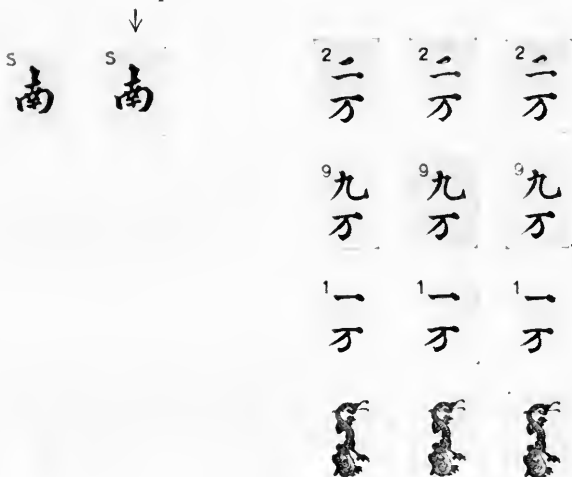 S 南 S 南
2 二万 2 二万 2 二万
9 九万 9 九万 9 九万
1 一万 1 一万 1 一万